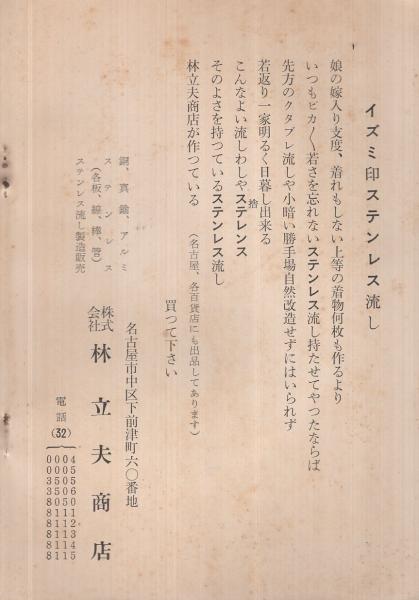 イズミ印ステンレス流し
娘の嫁入り支度、着れもしない上等の着物何枚も作るより
いつもピカ〳〵若さを忘れないステンレス流し持たせてやつたならば
先方のクタブレ流しや小暗い勝手場自然改造せずにはいられず
若返り一家明るく日暮し出来る
捨
こんなよい流しわしやステレンス
そのよさを持つているステンレス流し
林立夫商店が作つている
(名古屋、各百貨店にも出品してあります)
買つて下さい
銅、真鍮、アルミ
ステンレス
(各板、線、棒、管)
ステンレス流し製造販売
名古屋市中区下前津町六〇番地
株式会社 林立夫商店
電話(32)